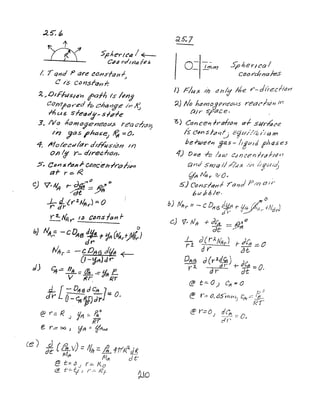 25.6
Spherical ←
Coordinates
1. T and P are constant,
C is constant.
2. Diffusion path is long
compared to change in R,
thus steady-state
3. No homogeneous reaction,
in gas phase, R_A=0.
4. Molecular diffusion in
only r-direction.
5. Constant concentration
at r = R
c) ∇·N_A + ∂C_A/∂t = R_A
1/r² d/dr (r²N_Ar) = 0
r²N_Ar is constant
b) N_Ar = -C D_AB dy_A/dr + y_A (N_Ar + N_Br)
N_Ar = -C D_AB/(1-y_A) dy_A/dr
d)
d/dr [ ] = 0.
@ r = R, y_A =
@ r = ∞, y_A = y_A∞
(e)
@ t = 0, r = R_0
210
25.7
1mm
Spherical
Coordinates
1) Flux in only the r-direction
2) No homogeneous reaction in
air space.
3) Concentration at surface
is constant, equilibrium
between gas-liquid phases
4) Due to low concentration
and small flux in liquid,
y_A N_Ar ≈ 0.
5) Constant T and P in air
bubble.
b) N_Ar = -C D_AB dy_A/dr + y_A
c) ∇·N_A + ∂C_A/∂t = R_A
1/r² d(r²N_Ar)/dr + dC_A/dt = 0
@ t = 0, C_A = 0
@ r = 0.05 mm, C_A =
@ r = 0, dC_A/dr = 0.